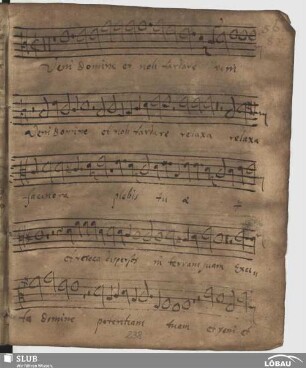 Veni domine et noli tardare veni
Veni domine et noli tardare relaxa relaxa
facinora plebis tu æ
et revoca dispersos in terram tuam Exci
ta domine potentiam tuam et veni et
SLUB
Wir führen Wissen.
LÖBAU